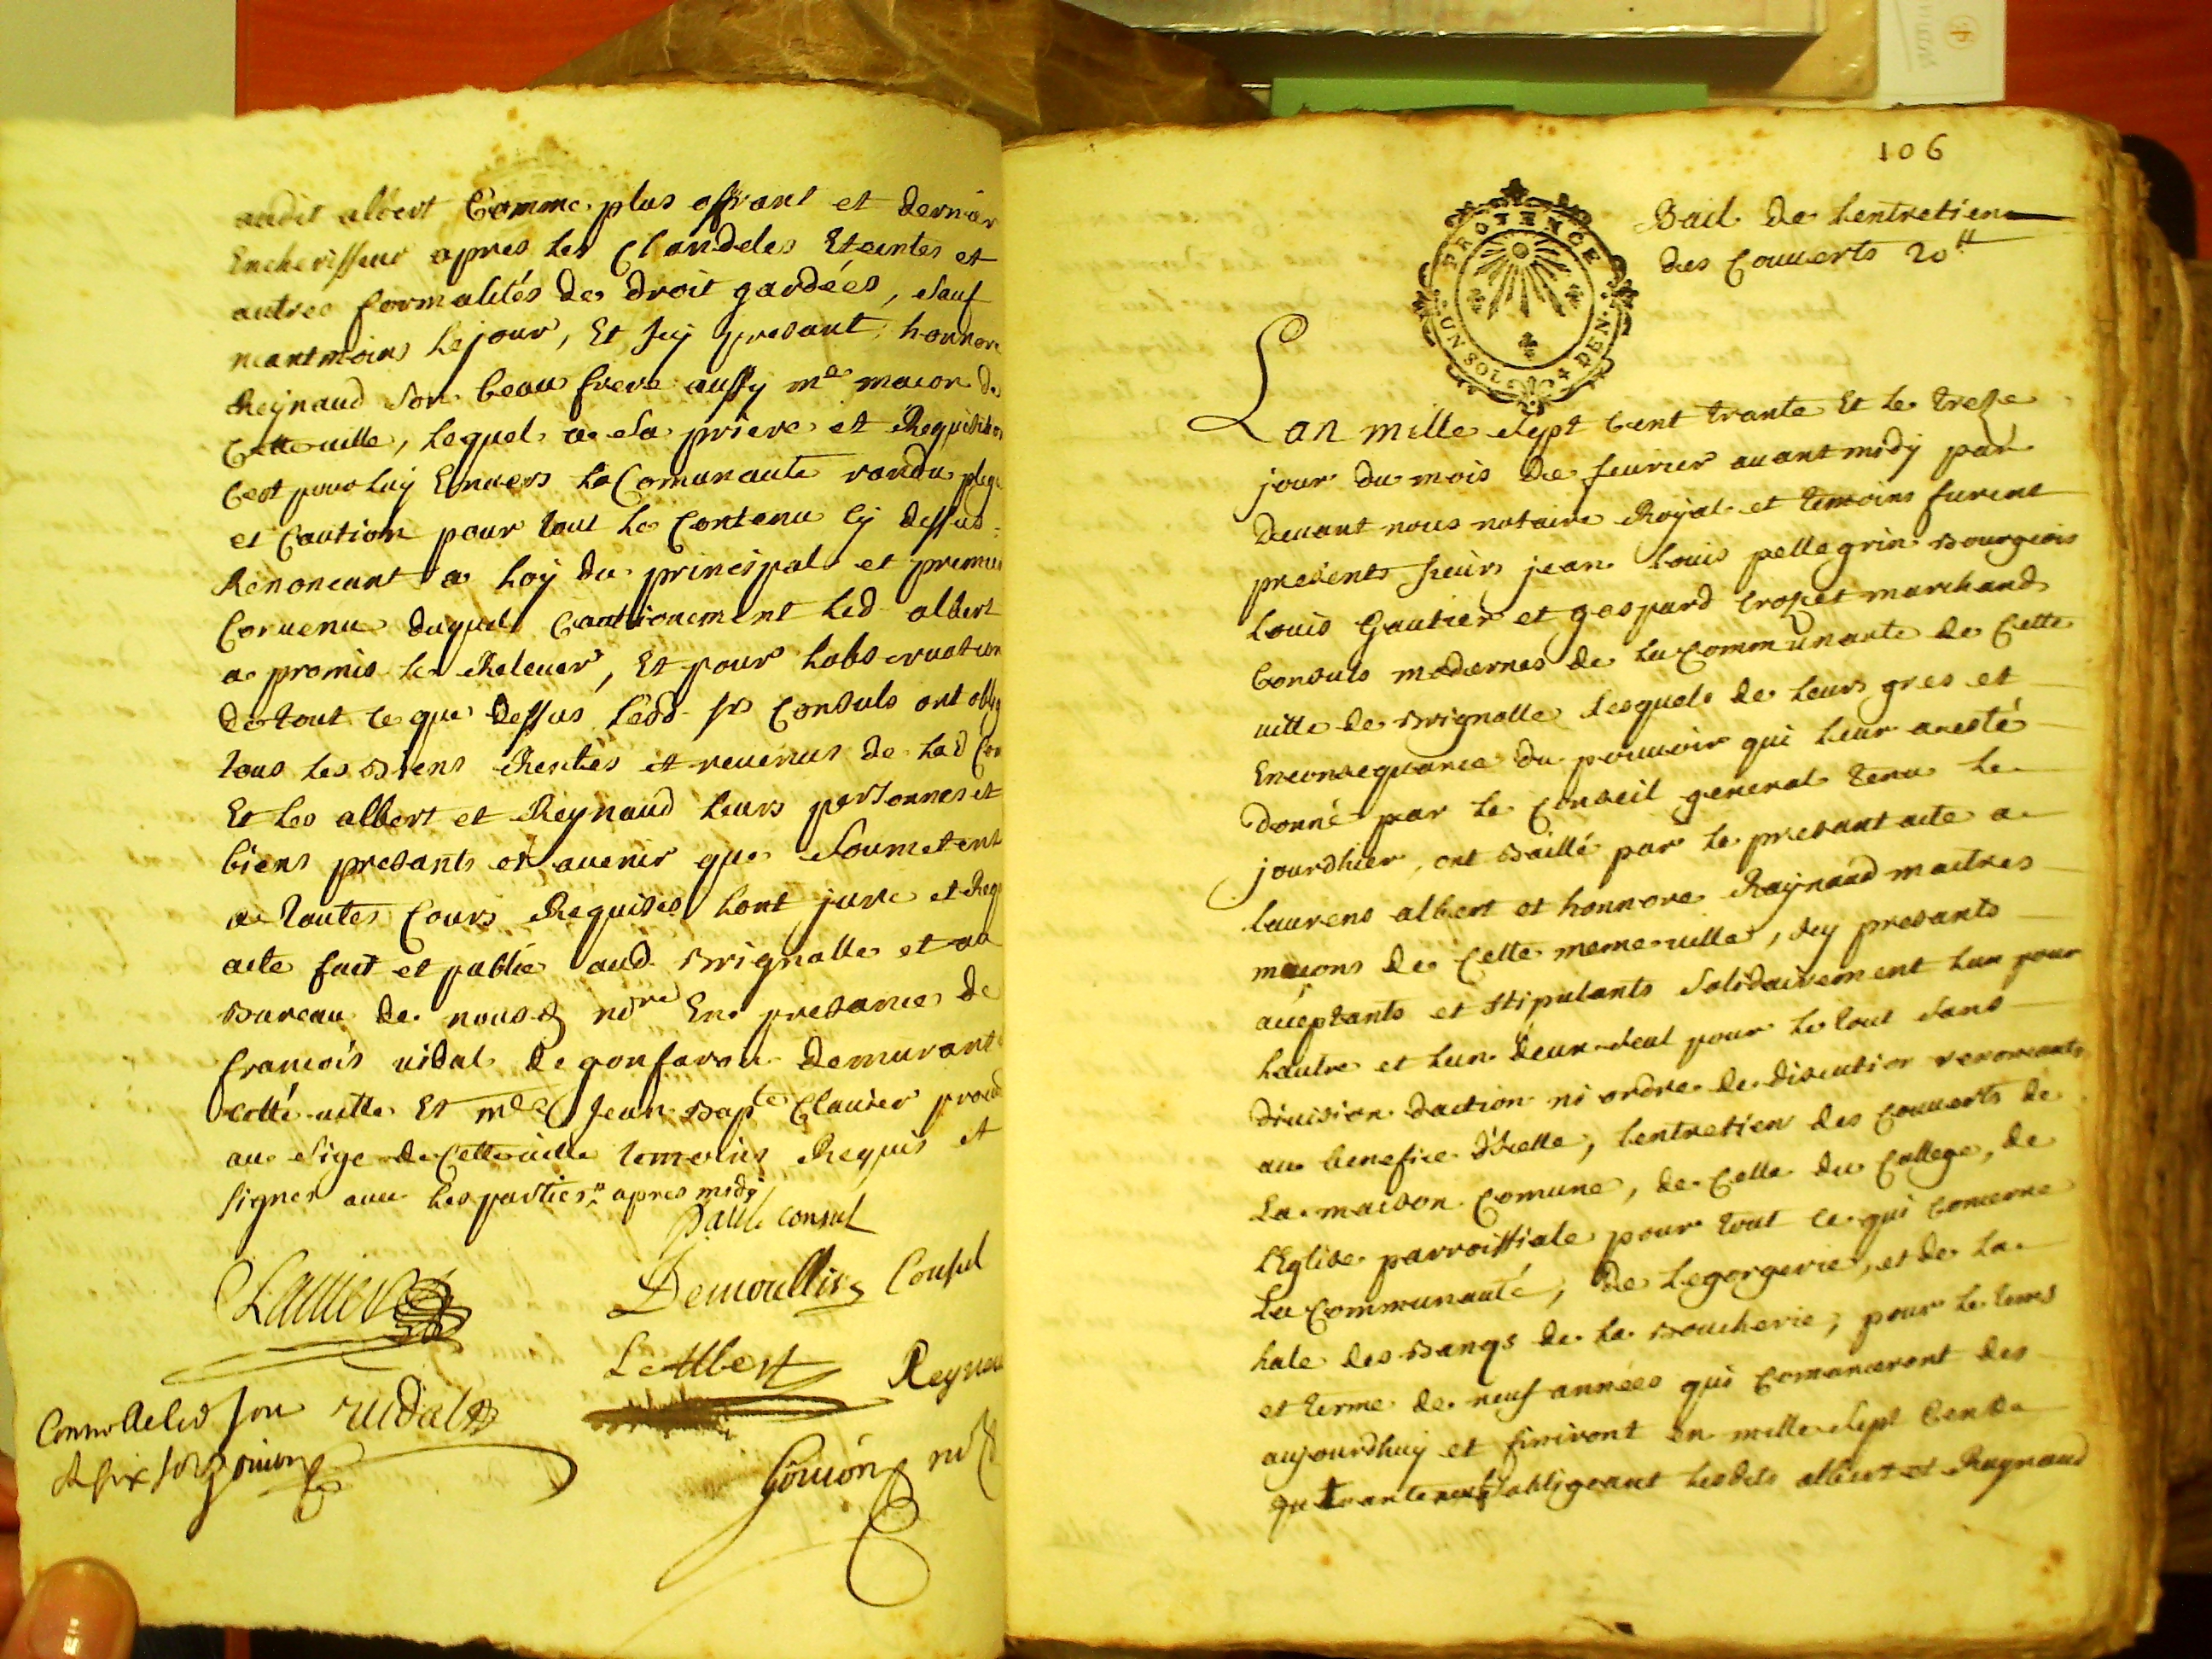 audit albert Comme plus offrant et dernier
Encherisseur apres les Chandeles Eteintes et
autres formalités de droit gardées, sauf
neantmoins le jour, Et Icy presant, honnore
Reynaud son beau frere aussy me macon de
Cette ville, lequel a sa priere et Requisition
Cest pour luy Envers la Comunaute randu plege
et Caution pour tout le Contenu cy dessus
Renonceant a loy du principal et premier
Convenu duquel Cautionement led albert
a promis le Relever, Et pour lobservation
de tout ce que dessus lesd srs Consuls ont oblig
tous les Biens Rentes et revenus de lad Com
Et les albert et Reynaud leurs personnes et
biens presants et avenir que soumetent
a toutes Cours Requises lont juré et Req
acte fait et publié aud Brignolle et au
Bureau de nousd nore En presance de
francois vidal de gonfaron demurant
cette ville Et me Jean Bapte Clavier procu
au sige de Cette ville temoins Requis et
signer avec les parties apres midy
paul consul
Clavier
Demoullin Consul
L Albert
Reynau
vidal
Controlle
Gouion nore
106
PROVENCE
UN SOL 4 DEN.
Bail de lentretien
des Couverts 20 tt
Lan mille sept Cent trante Et le treze
jour du mois de fevrier avant midy par
devant nous notaire Royal et temoins furent
presents sieurs jean louis pellegrin Bourgeois
louis Gautier et gaspard crozet marchands
Consuls modernes de la Communaute de Cette
ville de Brignolle lesquels de leurs gres et
Enconsequance du pouvoir qui leur a esté
donné par le Conseil general tenu le
jourdhier, ont Baillé par le presant acte a
laurens albert et honnore Raynaud maitres
macons de Cette meme ville, Icy presants
acceptants et stipulants solidairement lun pour
lautre et lun deux seul pour le tout sans
division daction ni ordre de discution renonceants
au benefice dicelle, lentretien des Couverts de
La maison Comune, de Celle du College, de
lEglise parroissiale pour tout ce qui Concerne
La Communauté, de legorgerie, et de la
hale des Bancs de la Boucherie, pour le tems
et terme de neuf années qui Comanceront des
aujourdhuy et finiront en mille sept Cents
quarante neuf sobligeant lesdits albert et Raynaud